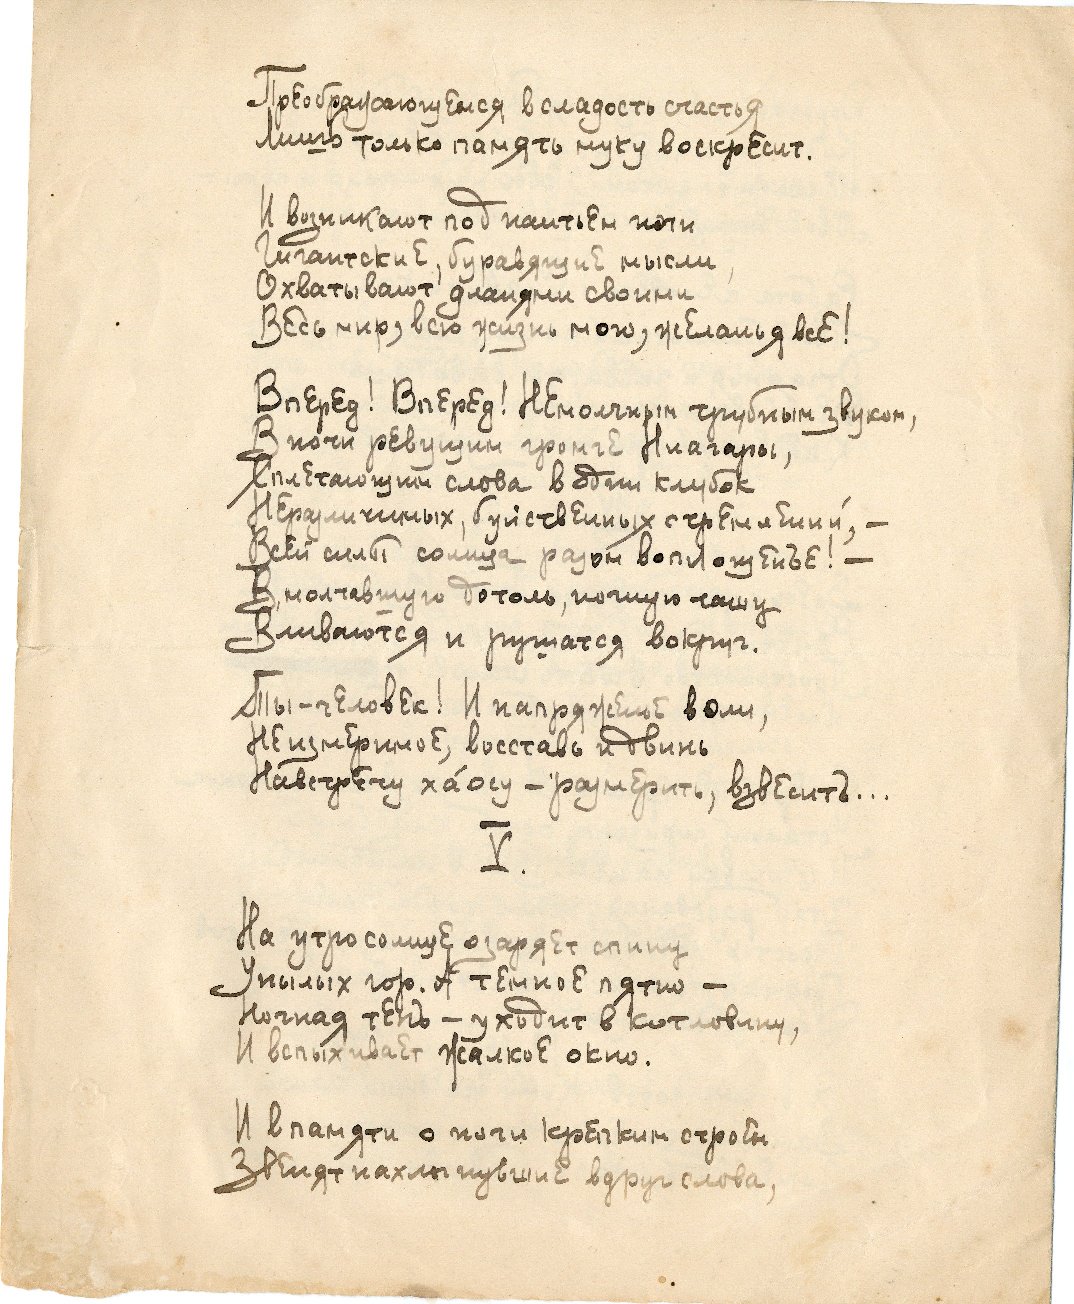 Преображающемся в сладость счастья
Лишь только память муку воскресит.
И возникают под наитьем ночи
Гигантские, буравящие мысли,
Охватывают дланями своими
Весь мир, всю жизнь мою, желанья все!
Вперед! Вперед! Немолчным трубным звуком,
В ночи ревущим громче Ниагары,
Сплетающим слова в один клубок
Неразличимых, буйственных стремлений, —
Всей силы солнца разом воплощенье! —
В молчавшую дотоль, ночную чашу
Вливаются и рушатся вокруг.
Ты – человек! И напряженье воли,
Неизмеримое, восставь и двинь
Навстречу ха́осу – размерить, взвесить...
V.
На утро солнце озаряет спину
Унылых гор. А темное пятно –
Ночная тень – уходит в котловину,
И вспыхивает жалкое окно.
И в памяти о ночи крепким строем
Звенят нахлынувшие вдруг слова,